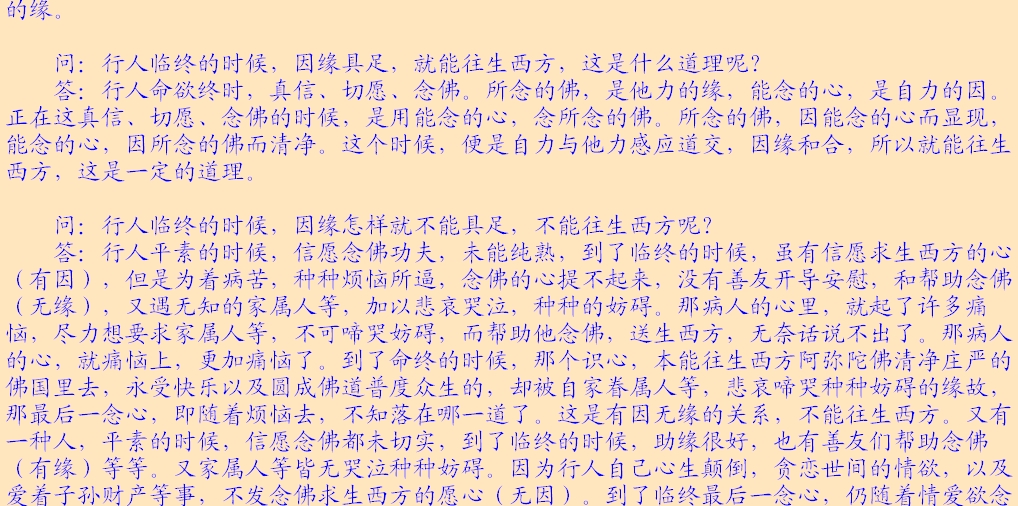 的缘。
问：行人临终的时候，因缘具足，就能往生西方，这是什么道理呢？
答：行人命欲终时，真信、切愿、念佛。所念的佛，是他力的缘，能念的心，是自力的因。
正在这真信、切愿、念佛的时候，是用能念的心，念所念的佛。所念的佛，因能念的心而显现，
能念的心，因所念的佛而清净。这个时候，便是自力与他力感应道交，因缘和合，所以就能往生
西方，这是一定的道理。
问：行人临终的时候，因缘怎样就不能具足，不能往生西方呢？
答：行人平素的时候，信愿念佛功夫，未能纯熟，到了临终的时候，虽有信愿求生西方的心
（有因），但是为着病苦，种种烦恼所逼，念佛的心提不起来，没有善友开导安慰，和帮助念佛
（无缘），又遇无知的家属人等，加以悲哀哭泣，种种的妨碍。那病人的心里，就起了许多痛
恼，尽力想要求家属人等，不可啼哭妨碍，而帮助他念佛，送生西方，无奈话说不出了。那病人
的心，就痛恼上，更加痛恼了。到了命终的时候，那个识心，本能往生西方阿弥陀佛清净庄严的
佛国里去，永受快乐以及圆成佛道普度众生的，却被自家眷属人等，悲哀啼哭种种妨碍的缘故，
那最后一念心，即随着烦恼去，不知落在哪一道了。这是有因无缘的关系，不能往生西方。又有
一种人，平素的时候，信愿念佛都未切实，到了临终的时候，助缘很好，也有善友们帮助念佛
（有缘）等等。又家属人等皆无哭泣种种妨碍。因为行人自己心生颠倒，贪恋世间的情欲，以及
爱着子孙财产等事，不发念佛求生西方的愿心（无因）。到了临终最后一念心，仍随着情爱欲念